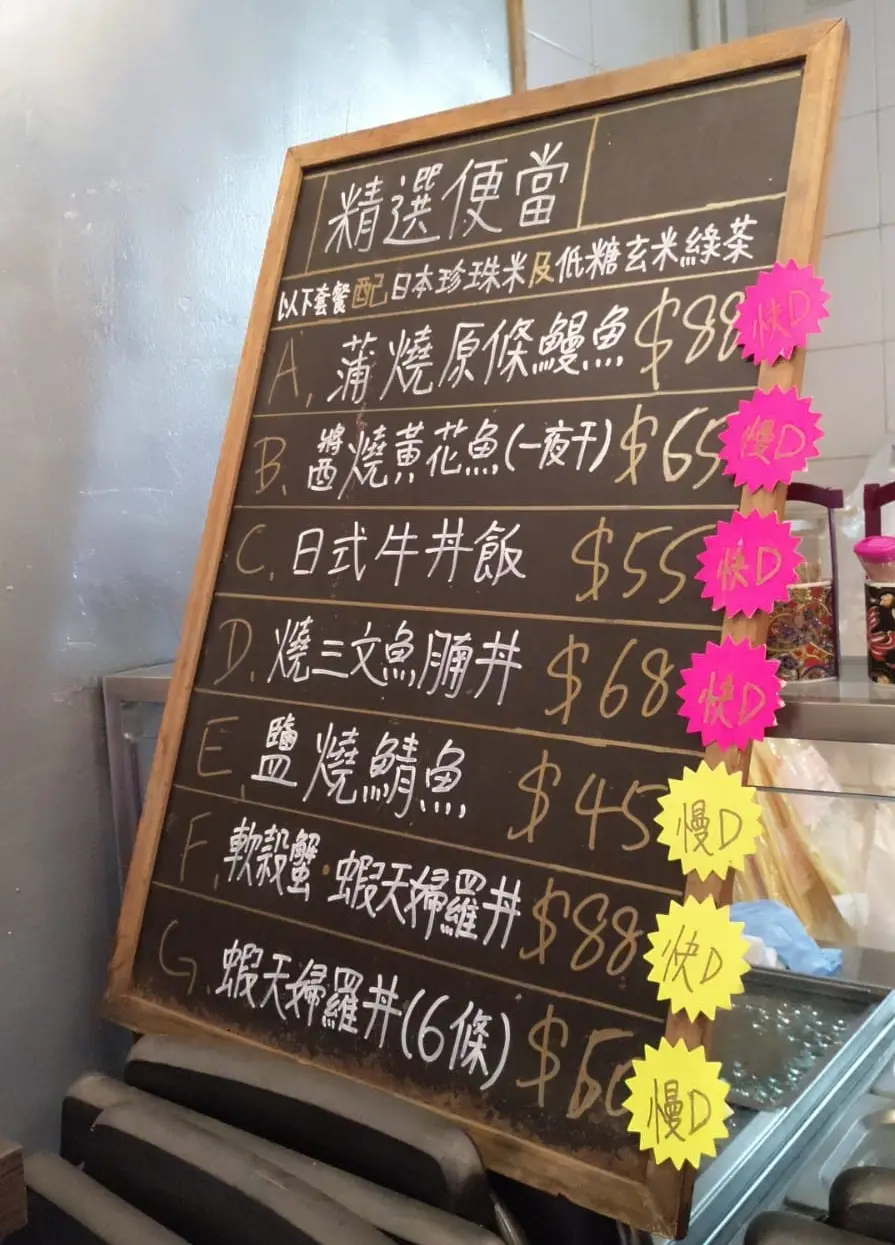 精選便當
以下套餐配日本珍珠米及低糖玄米綠茶
A. 蒲燒原條鰻魚 $88 快D
B. 醬燒黃花魚(一夜干) $65 慢D
C. 日式牛丼飯 $55 快D
D. 燒三文魚腩丼 $68 快D
E. 鹽燒鯖魚 $45 慢D
F. 軟殼蟹·蝦天婦羅丼 $88 快D
G. 蝦天婦羅丼(6條) 慢D